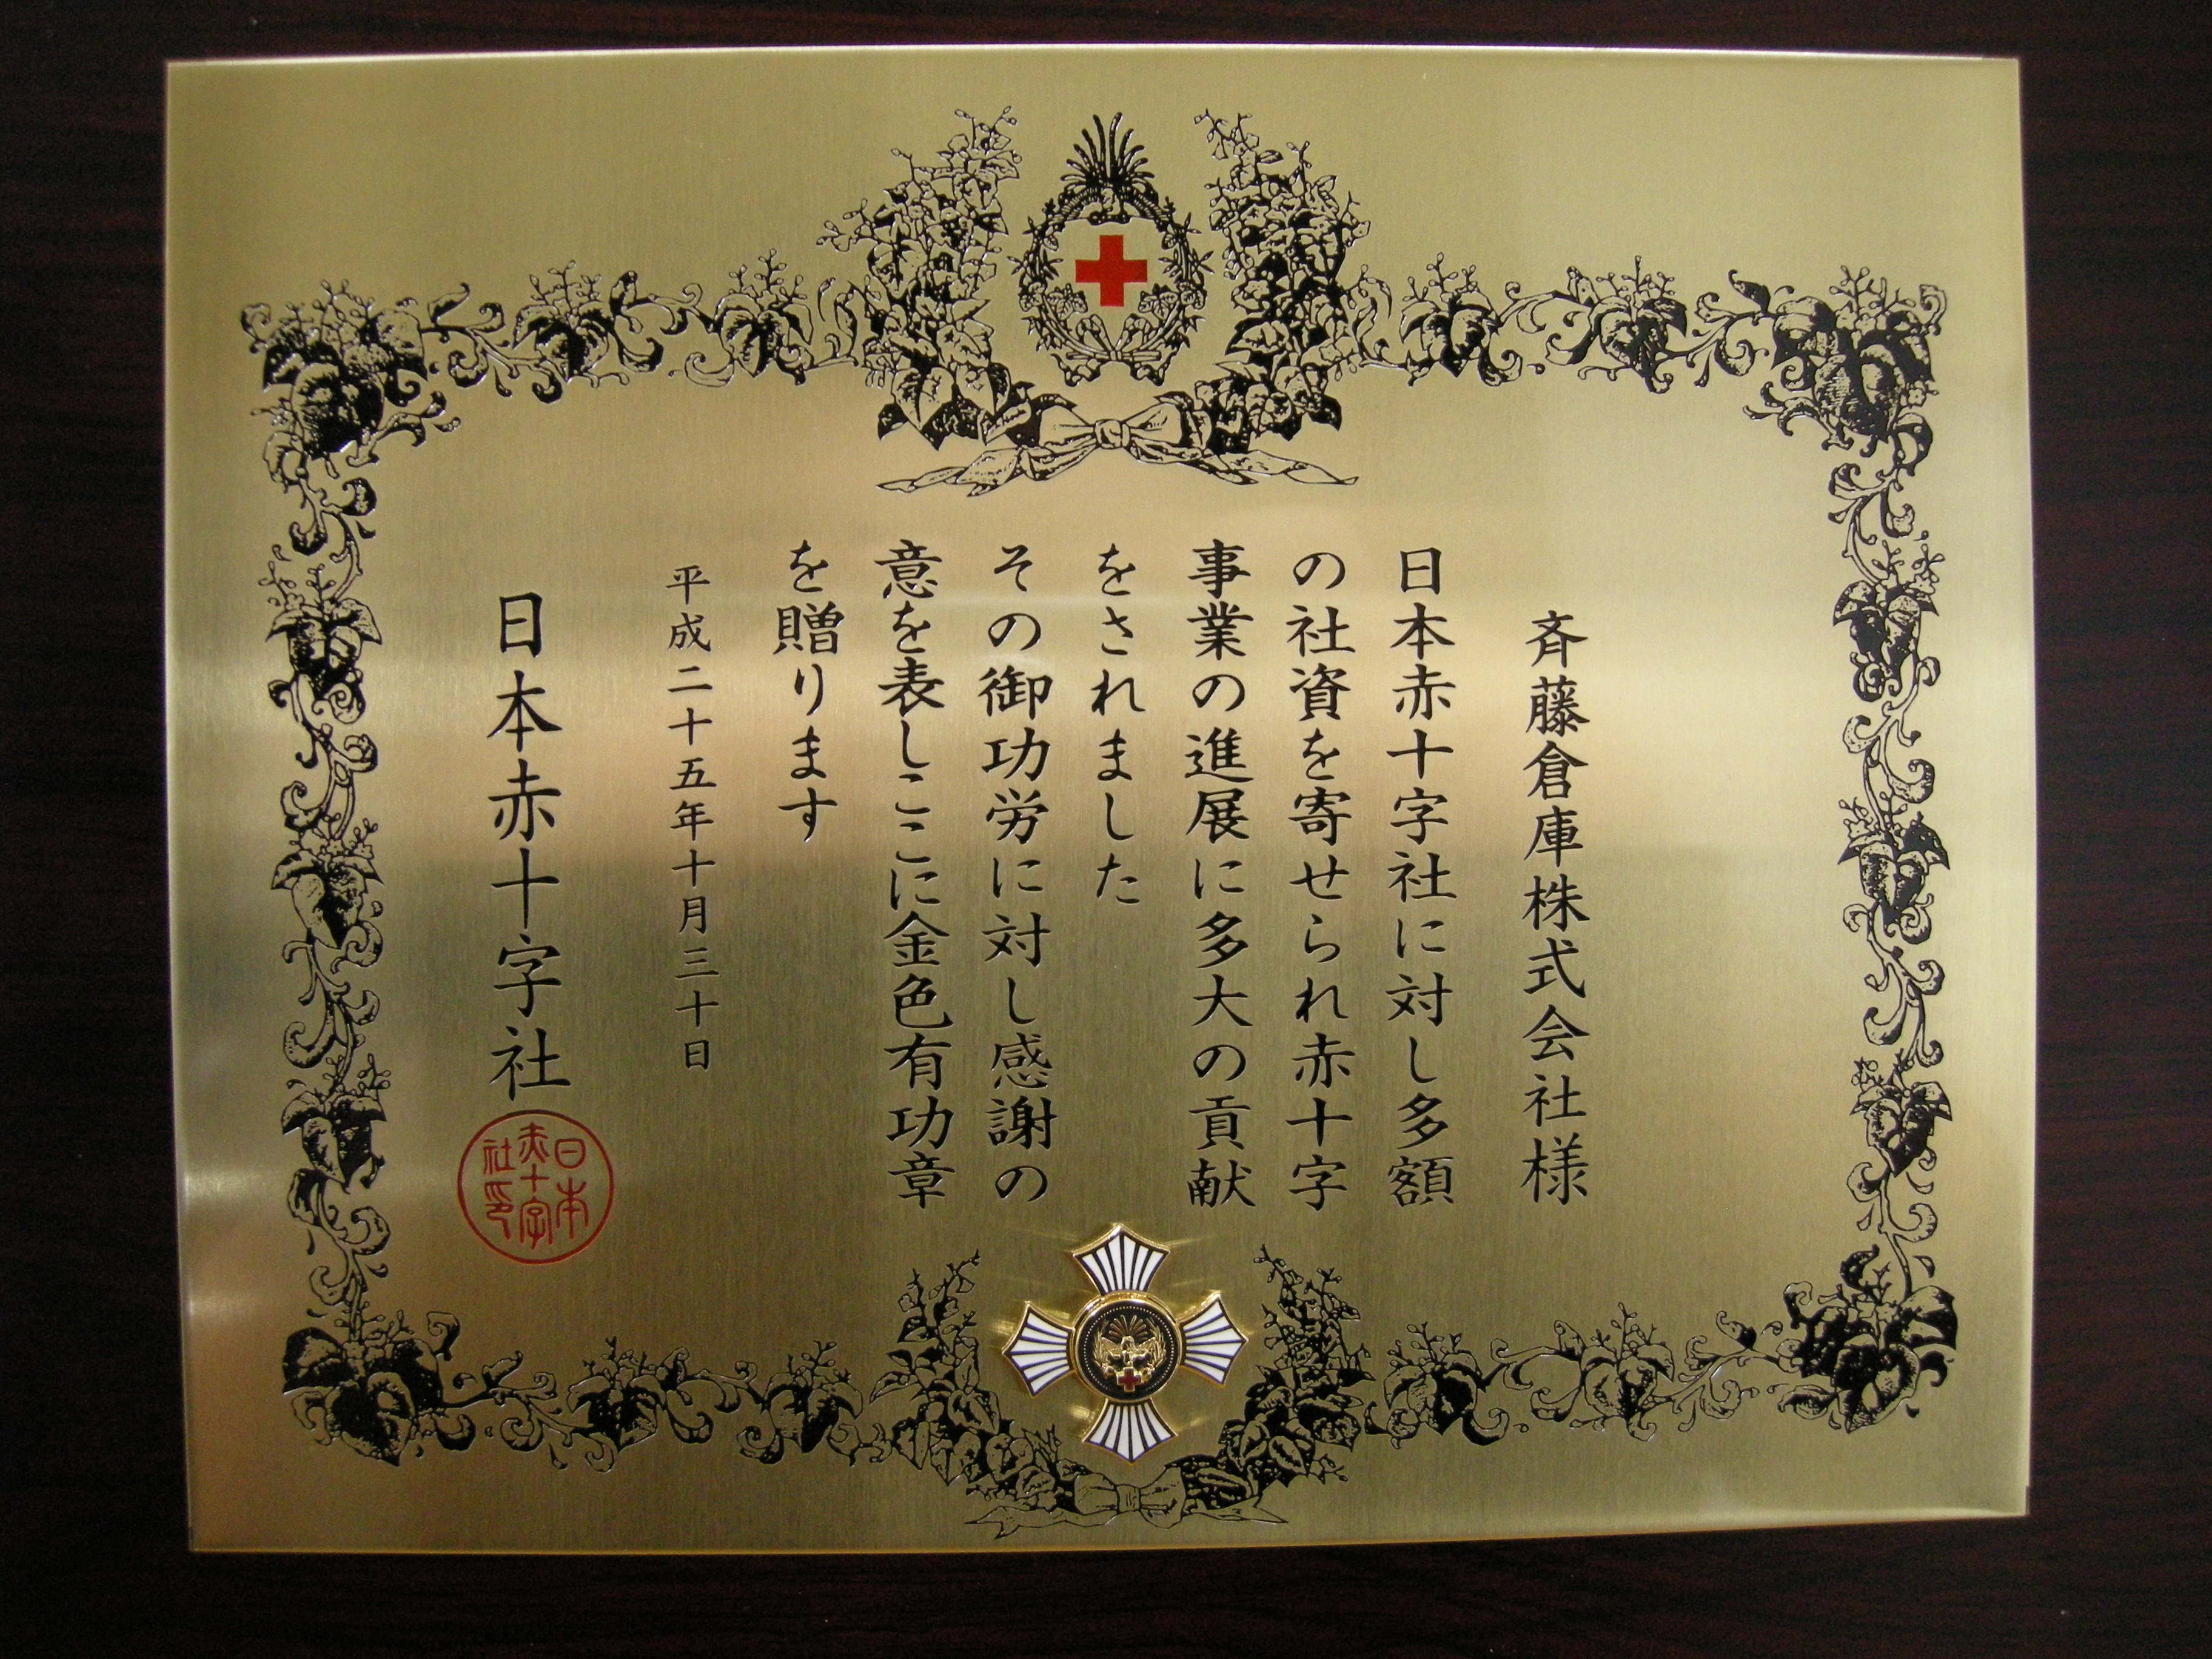 斉藤倉庫株式会社様
日本赤十字社に対し多額
の社資を寄せられ赤十字
事業の進展に多大の貢献
をされました
その御功労に対し感謝の
意を表しここに金色有功章
を贈ります
平成二十五年十月三十日
日本赤十字社
日本
赤十字
社印